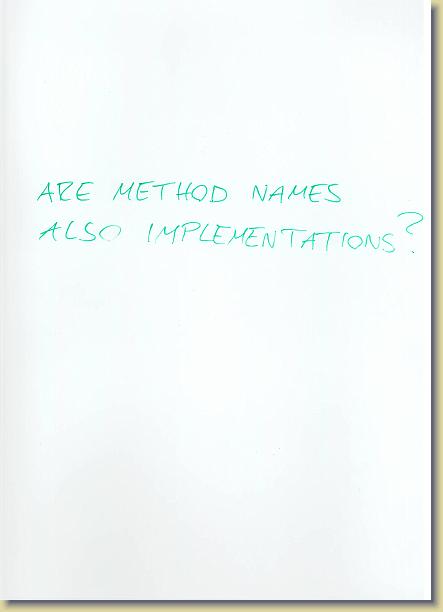 ARE METHOD NAMES
ALSO IMPLEMENTATIONS?